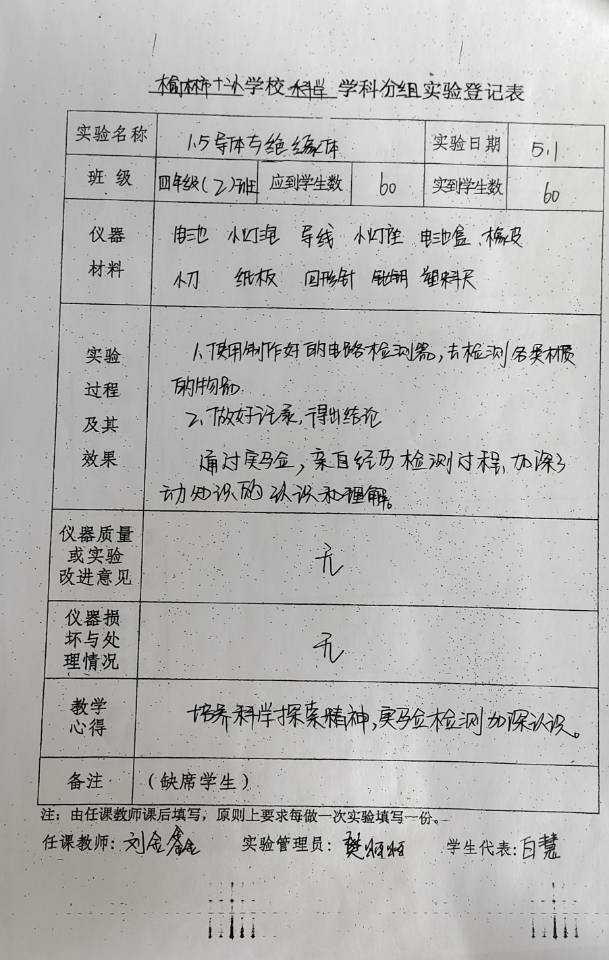 榆林市十二小学校 科学 学科分组实验登记表
实验名称 1.5导体与绝缘体 实验日期 5.1
班 级 四年级(2)班 应到学生数 60 实到学生数 60
仪器 电池 小灯泡 导线 小灯座 电池盒、橡皮
材料 小刀 纸板 回形针 钥匙 塑料尺
实验
过程
及其
效果
1、使用制作好的电路检测器,去检测各类材质
的物品
2、做好记录,得出结论
通过实验,亲自经历检测过程、加深了
对知识的认识和理解。
仪器质量
或实验
改进意见
无
仪器损
坏与处
理情况
无
教学
心得
培养科学探索精神,实验检测加深认识。
备注 (缺席学生)
注:由任课教师课后填写,原则上要求每做一次实验填写一份。
任课教师: 刘金鑫 实验管理员: 樊婷婷 学生代表: 白慧